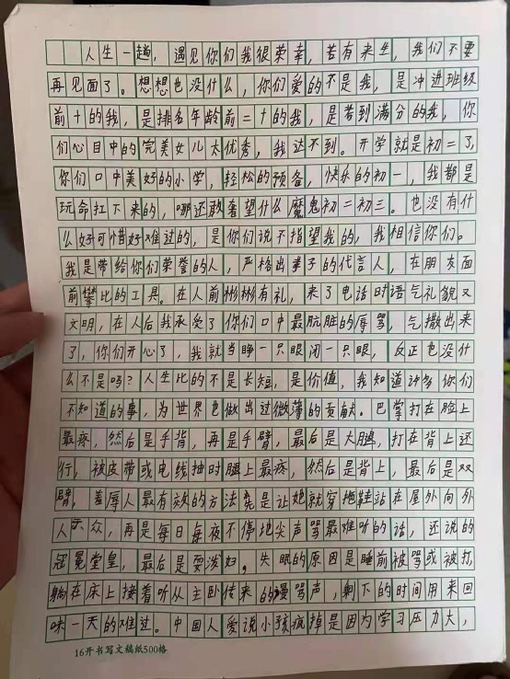 人生一趟，遇见你们我很荣幸，若有来生，我们不要
再见面了。想想也没什么，你们爱的不是我，是冲进班级
前十的我，是排名年龄前二十的我，是考到满分的我，你
们心目中的完美女儿太优秀，我达不到。开学就是初二了，
你们口中美好的小学，轻松的预备，快乐的初一，我都是
玩命扛下来的，哪还敢奢望什么魔鬼初二初三。也没有什
么好可惜好难过的，是你们说不指望我的，我相信你们。
我是带给你们荣誉的人，严格出事子的代言人，在朋友面
前攀比的工具。在人前彬彬有礼，来了电话时语气礼貌又
文明，在人后我承受了你们口中最肮脏的辱骂，气撒出来
了，你们开心了，我就当睁一只眼闭一只眼，反正也没什
么不是吗？人生比的不是长短，是价值，我知道许多你们
不知道的事，为世界也做出过微薄的贡献。巴掌打在脸上
最疼，然后是手背，再是手臂，最后是大腿，打在背上还
行，被皮带或电线抽时腿上最疼，然后是背上，最后是双
臂，羞辱人最有效的方法竟是让她就穿拖鞋站在屋外向外
人示众，再是每日每夜不停地尖声骂最难听的话，还说的
冠冕堂皇，最后是耍泼妇。失眠的原因是睡前被骂或被打，
躺在床上接着听从主卧传来的谩骂声，剩下的时间用来回
味一天的难过。中国人爱说小孩疯掉是因为学习压力大，
16开书写文稿纸500格